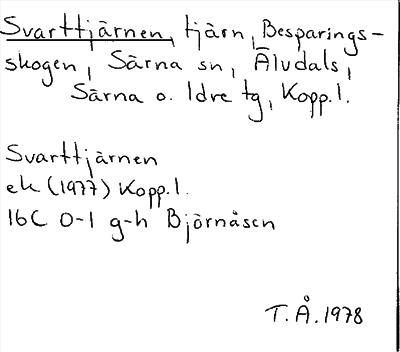 Svarttjärnen, tjärn, Besparings-
skogen, Särna sn, Älvdals,
Särna o. Idre tg, Kopp.l.
Svarttjärnen
ek (1977) Kopp.l.
16C 0-1 g-h Björnåsen
T.Å.1978